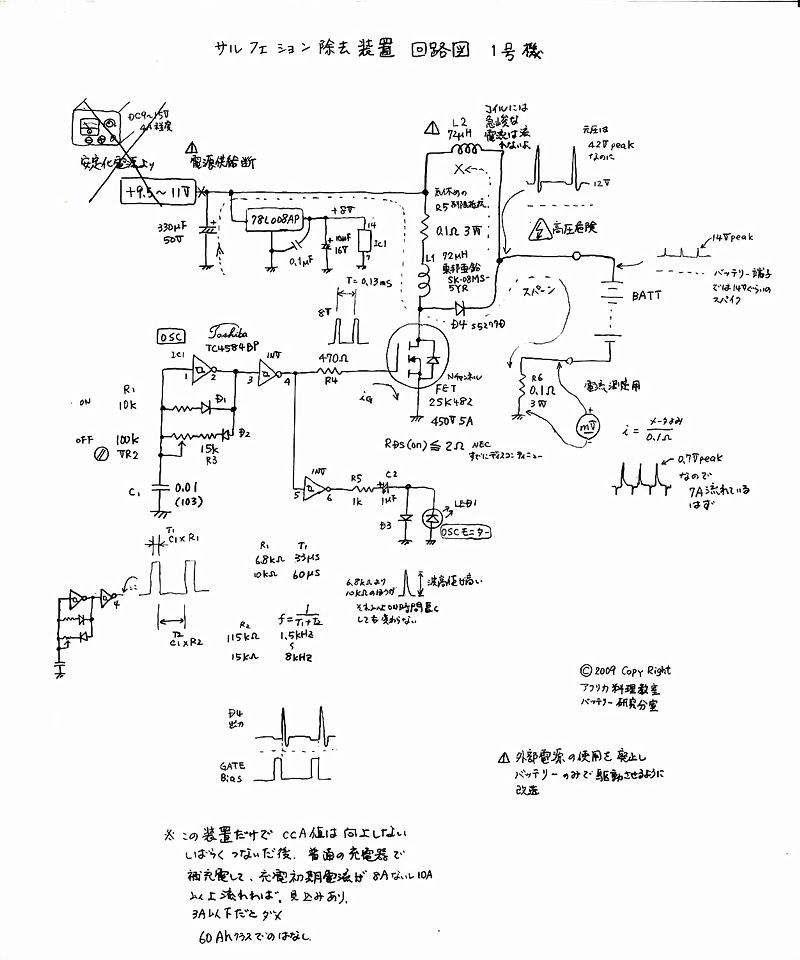 サルフェション除去装置 回路図 1号機
DC9～15V
4A程度
安定化電源より
+9.5～11V
電源供給断
330μF
50V
78L008AP
0.1μF
+8V
10μF
16V
14
IC1
7
L2
72μH
コイルには
急峻な
電流は流
れないよ
X
R5
0.1Ω 3W
L1
72μH
東邦亜鉛
SK-08MS-
5YR
D4 S5277D
元圧は
42V peak
なのに
12V
高圧危険
14V peak
バッテリー端子
では14Vぐらいの
スパイク
スパーン
BATT
T=0.13mS
8V
OSC
Toshiba
TC4584BP
IC1
1
2
3
INV
4
470Ω
R4
iG
Nチャンネル
FET
2SK482
450V 5A
RDS(on)≦2Ω NEC
すでにディスコンティニュー
R6
0.1Ω
3W
電流測定用
+
mV
-
i = メータよみ/0.1Ω
0.7V peak
なので
7A流れている
はず
ON
R1
10k
D1
OFF
100k
VR2
D2
15k
R3
C1
0.01
(103)
5
INV
6
R5
1k
C2
1μF
D3
LED1
OSCモニター
T1
C1×R1
T2
C1×R2
4
R1 T1
6.8kΩ 33μS
10kΩ 60μS
f = 1/(T1+T2)
R2
115kΩ 1.5kHz
15kΩ 8kHz
6.8kΩより
10kΩのほうが
波高値が高い
それ以上ON時間長く
しても変わらない
D4
出力
GATE
Bias
©2009 Copy Right
アフリカ料理教室
バッテリー研究分室
外部電源の使用を廃止し
バッテリーのみで駆動させるように
改造
※この装置だけで CCA値は向上しない
しばらくつないだ後、普通の充電器で
補充電して、充電初期電流が 8Aないし10A
以上流れれば、見込みあり。
3A以下だとダメ
60Ahクラスでのはなし